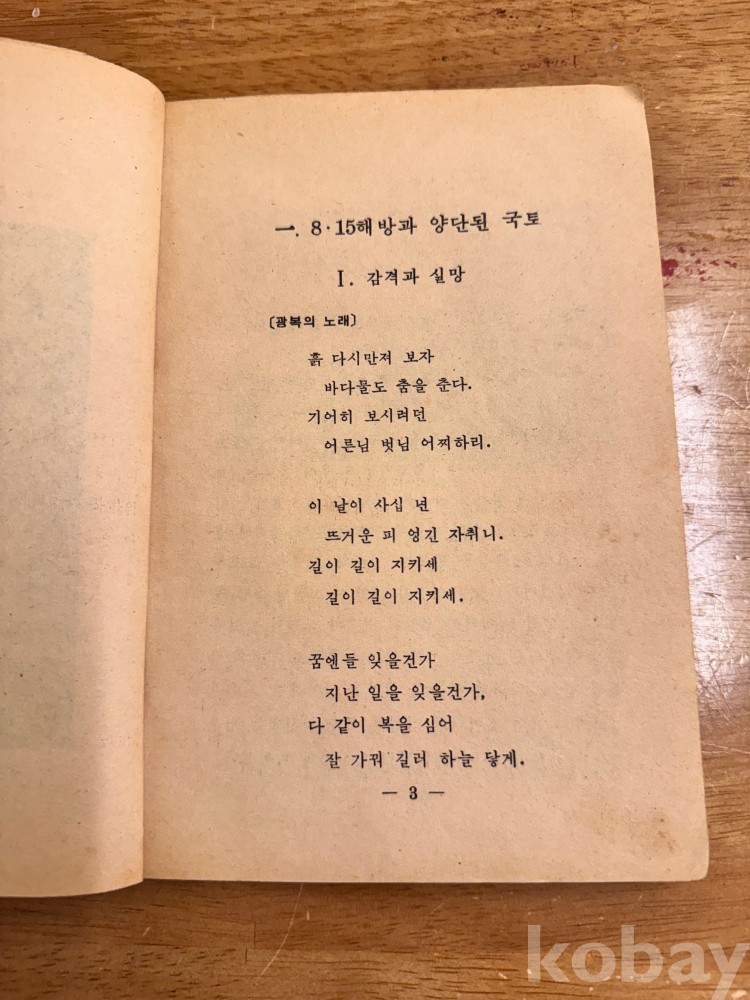 一. 8·15해방과 양단된 국토
I. 감격과 실망
〔광복의 노래〕
흙 다시만져 보자
바다물도 춤을 춘다.
기어히 보시려던
어른님 벗님 어찌하리.
이 날이 사십 년
뜨거운 피 엉긴 자취니.
길이 길이 지키세
길이 길이 지키세.
꿈엔들 잊을건가
지난 일을 잊을건가,
다 같이 복을 심어
잘 가꿔 길러 하늘 닿게.
— 3 —
kobay